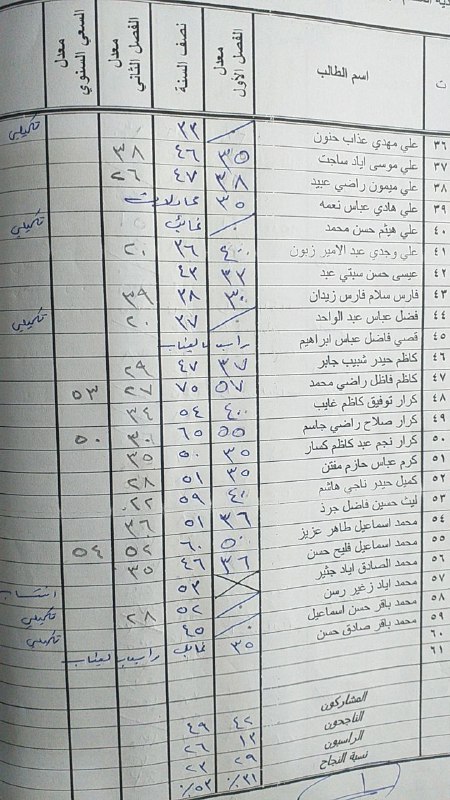 ت اسم الطالب معدل الفصل الأول نصف السنة معدل الفصل الثاني معدل السعي السنوي
٣٦ علي مهدي عذاب حنون ٣٣ تكميلي
٣٧ علي موسى اياد ساجت ٣٥ ٤٦ ٣٨
٣٨ علي ميمون راضي عبيد ٣٨ ٤٧ ٢٦
٣٩ علي هادي عباس نعمه ٣٥
٤٠ علي هيثم حسن محمد غائب تكميلي
٤١ علي وجدي عبد الامير زبون ٤٠ ٣٦ ٢٠
٤٢ عيسى حسن سبتي عبد ٣٣ ٤٣
٤٣ فارس سلام فارس زيدان ٣٠ ٣٨ ٣٩
٤٤ فضل عباس عبد الواحد ٣٧ ٢٠ تكميلي
٤٥ قصي فاضل عباس ابراهيم راسب بالغياب
٤٦ كاظم حيدر شبيب جابر ٣٧ ٤٧ ٢٩
٤٧ كاظم فاظل راضي محمد ٥٧ ٧٥ ٢٧ ٥٣
٤٨ كرار توفيق كاظم غايب ٤٠ ٥٤ ٣٤
٤٩ كرار صلاح راضي جاسم ٥٥ ٦٥ ٤٠ ٥٠
٥٠ كرار نجم عبد كاظم كسار ٣٥ ٥٠ ٣٥
٥١ كرم عباس حازم مفتن ٣٥ ٥١ ٢٨
٥٢ كميل حيدر ناجي هاشم ٤٠ ٥٩ ٢٢
٥٣ ليث حسين فاضل جرد ٣٦ ٥١ ٣٦
٥٤ محمد اسماعيل طاهر عزيز ٥٠ ٦٠ ٥٢ ٥٤
٥٥ محمد اسماعيل فليح حسن ٣٦ ٤٦ ٣٥
٥٦ محمد الصادق اياد جثير ٥٣ انتساب
٥٧ محمد اياد زغير رسن ٥٢ ٢٨ تكميلي
٥٨ محمد باقر حسن اسماعيل ٤٥ تكميلي
٥٩ محمد باقر صادق حسن ٣٥ غائب راسب بالغياب
٦٠
٦١
المشاركون ٤٢ ٤٩
الناجحون ١٣ ٢٦
الراسبون ٢٩ ٢٣
نسبة النجاح ٣١٪ ٥٣٪